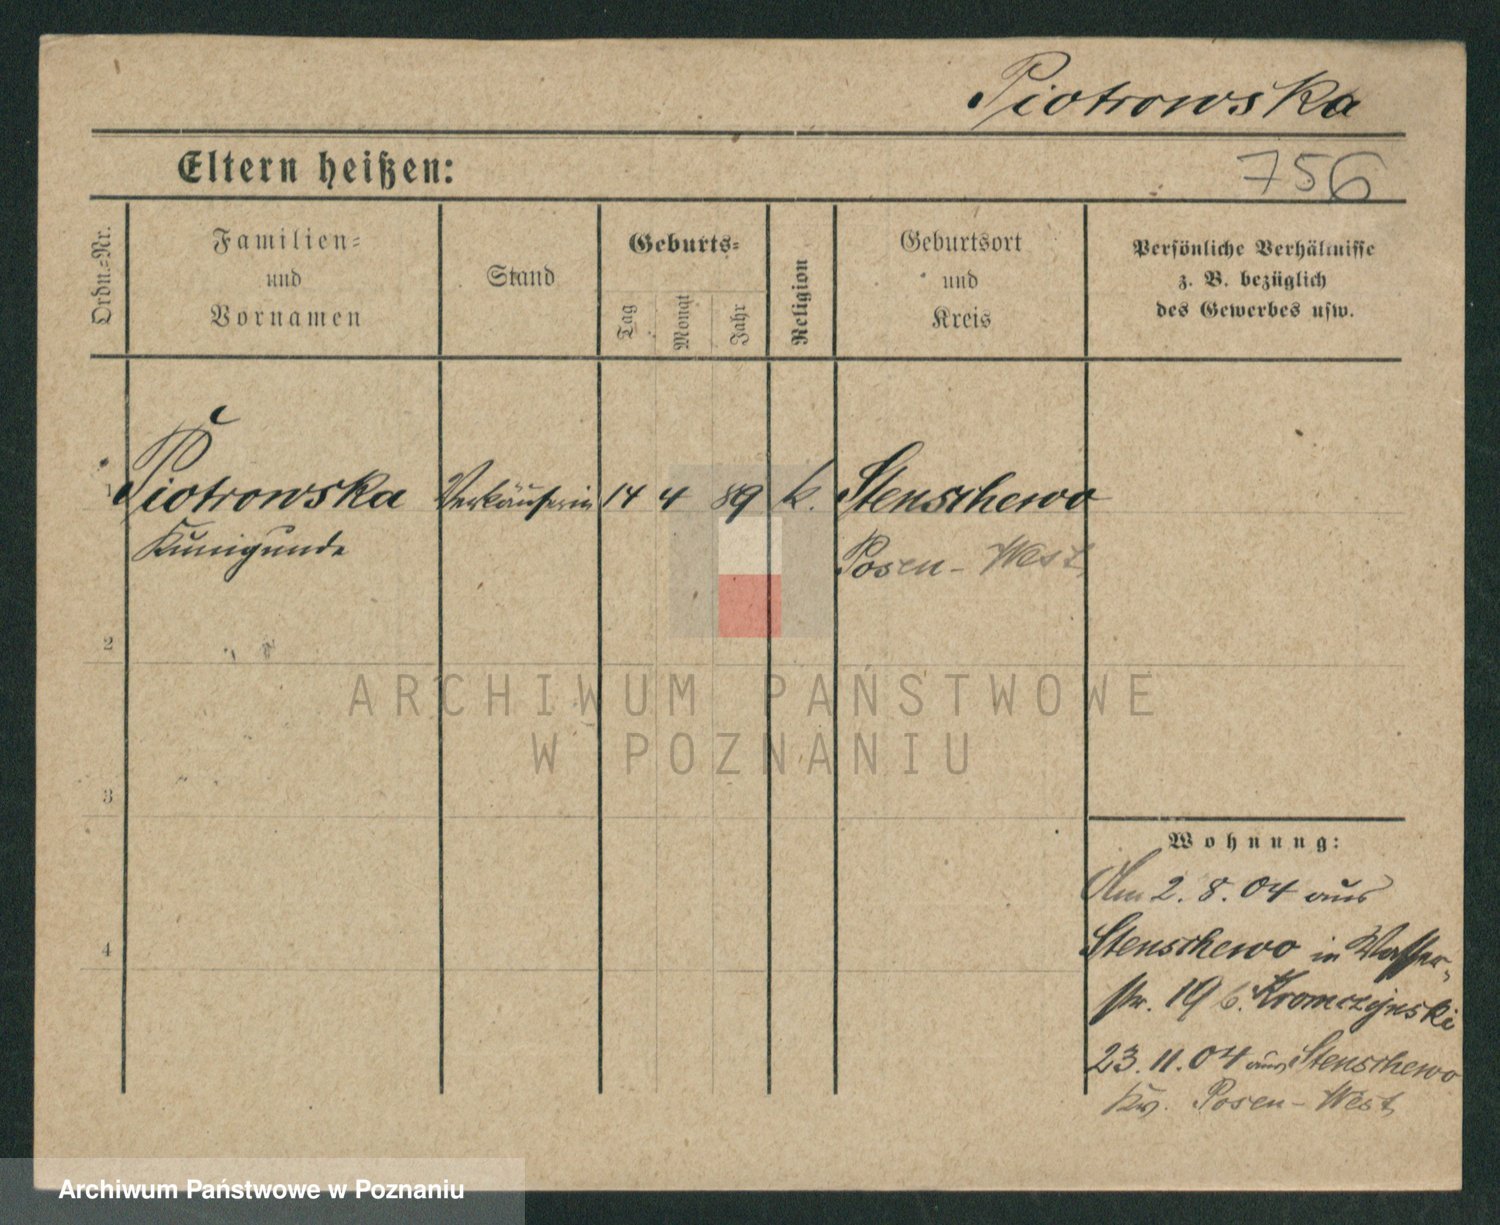 Piotrowska
Eltern heißen:
756
Ordn.-Nr.
Familien-
und
Vornamen
Stand
Geburts-
Tag
Monat
Jahr
Religion
Geburtsort
und
Kreis
Persönliche Verhältnisse
z. B. bezüglich
des Gewerbes usw.
1
Piotrowska Verkäuferin 14 4 89 k. Stenschewo
Kunigunde Posen-West
2
ARCHIWUM PAŃSTWOWE
W POZNANIU
3
Wohnung:
Am 2.8.04 aus
Stenschewo in Wasser-
str. 19 b. Kromczynski
4
23.11.04 aus Stenschewo
Posen-West
Archiwum Państwowe w Poznaniu